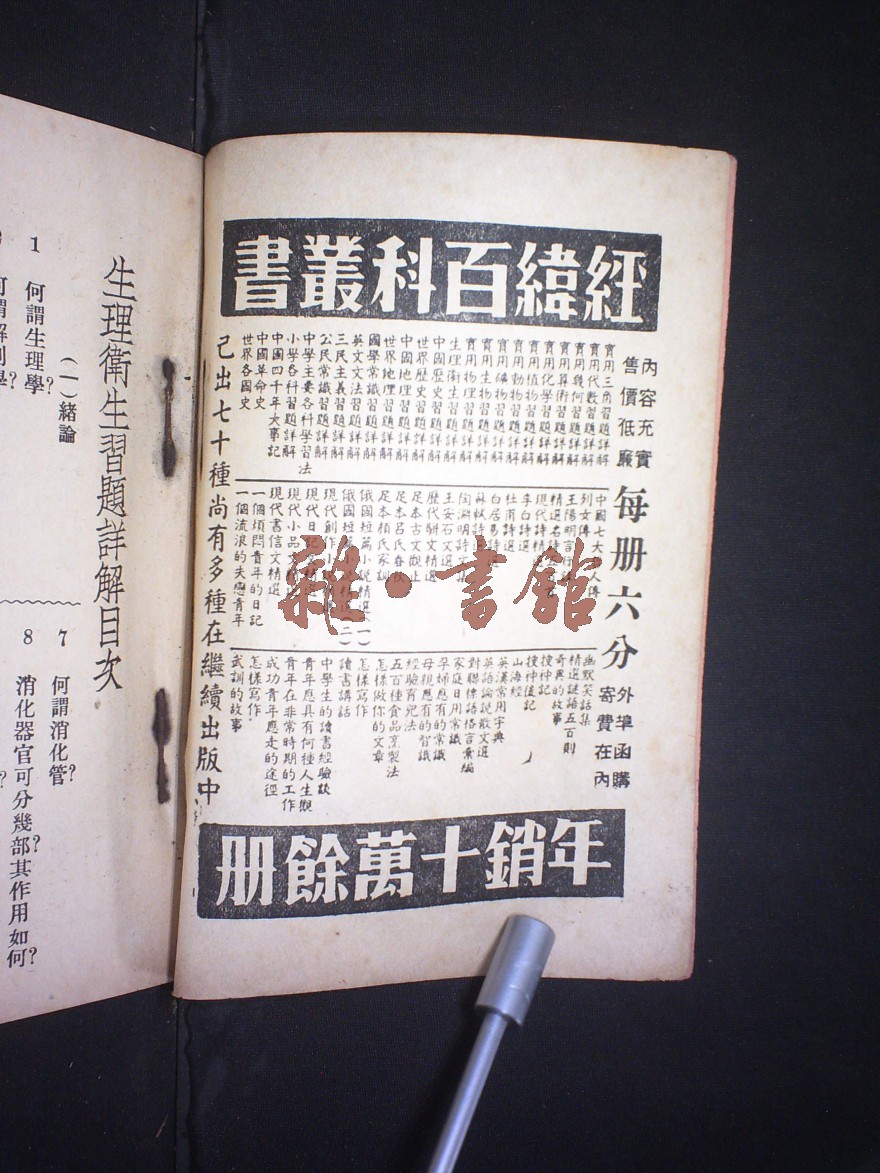 經緯百科叢書
內容充實
售價低廉
每册六分
外埠函購
寄費在內
實用三角習題詳解
實用代數習題詳解
實用幾何習題詳解
實用算術習題詳解
實用化學習題詳解
實用植物習題詳解
實用動物習題詳解
實用礦物習題詳解
實用物理習題詳解
實用生物習題詳解
生理衛生習題詳解
中國歷史習題詳解
世界歷史習題詳解
中國地理習題詳解
世界地理習題詳解
國學常識習題詳解
英文文法習題詳解
三民主義習題詳解
公民常識習題詳解
中學主要各科學習法
小學各科習題詳解
中國四千年大事記
中國革命史
世界各國史
中國七大人傳
列女傳
王陽明言行錄
精選名詩
現代詩精選
李白詩選
杜甫詩選
白居易詩選
蘇軾詩
陶淵明詩文
王安石文選
歷代駢文精選
足本古文觀止
足本呂氏春秋
足本顏氏家訓
俄國短篇小說精選(一)
俄國短篇小說精選(二)
現代創作小說精選
現代日記精選
現代小品文精選
現代書信文精選
一個煩悶青年的日記
一個流浪的失戀青年
幽默笑話集
精選謎語五百則
奇異的故事
搜神記
搜神後記
山海經
英漢常用字典
英語論說散文選
對聯偶語格言彙編
家庭日用常識
孕婦應有的常識
母親應有的智識
經驗育兒法
五百種食品烹製法
怎樣做你的文章
怎樣寫作
讀書講話
中學生的讀書經驗談
青年應具有何種人生觀
青年在非常時期的工作
成功青年應走的途徑
怎樣寫作
武訓的故事
已出七十種尚有多種在繼續出版中
年銷十萬餘册
雜·書館
生理衛生習題詳解目次
(一)緒論
1 何謂生理學?
7 何謂消化管?
8 消化器官可分幾部?其作用如何?